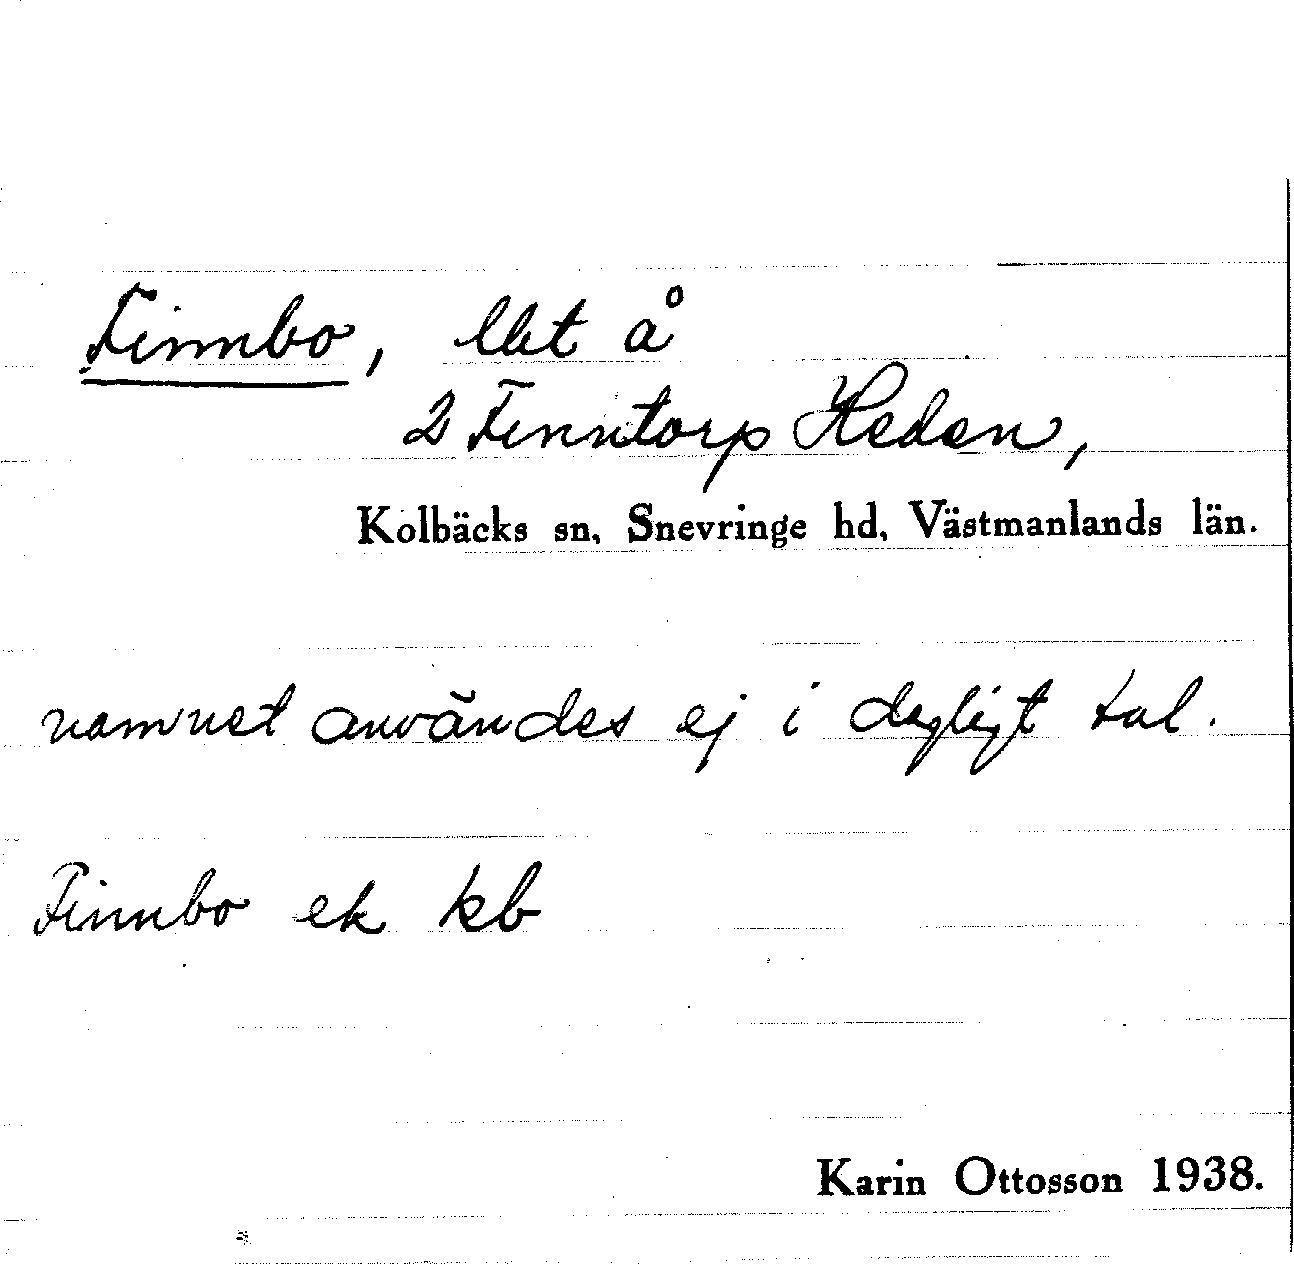 Finnbo, lht å
2 Finntorp Heden,
Kolbäcks sn, Snevringe hd, Västmanlands län.
namnet användes ej i dagligt tal.
Finnbo ek kb
Karin Ottosson 1938.